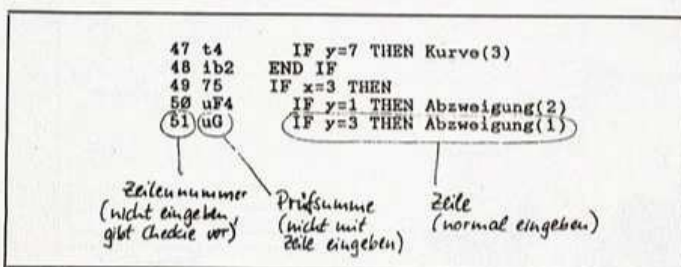 47 t4 IF y=7 THEN Kurve(3)
48 ib2 END IF
49 75 IF x=3 THEN
50 uF4 IF y=1 THEN Abzweigung(2)
51 uG IF y=3 THEN Abzweigung(1)
Zeilennummer
(nicht eingeben,
gibt Checkie vor)
Prüfsumme
(nicht mit
Zeile eingeben)
Zeile
(normal eingeben)